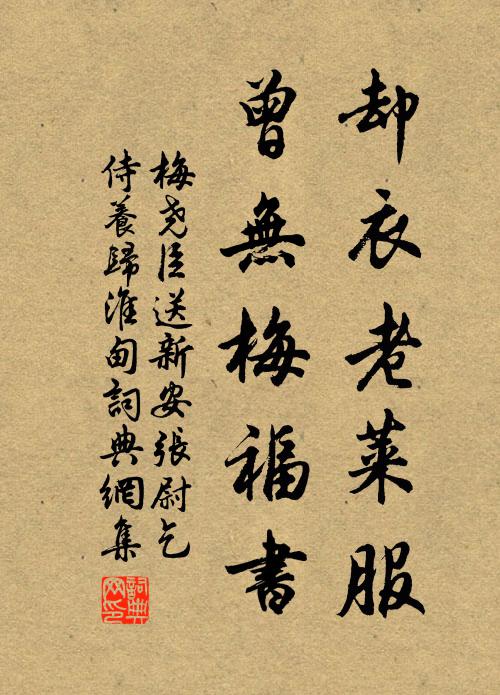 却衣老莱服
曾無梅福書
梅尧臣送新安張尉乞
侍養歸淮甸詞典網集
詞典
网印